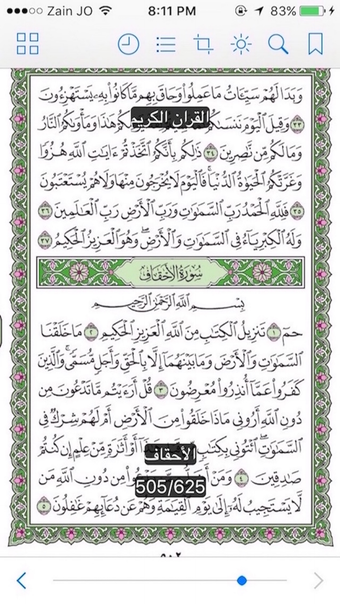 ●●●○○ Zain JO 8:11 PM 83%
وَبَدَا لَهُمْ سَيِّـَٔاتُ مَا عَمِلُوا۟ وَحَاقَ بِهِم مَّا كَانُوا۟ بِهِۦ يَسْتَهْزِءُونَ
القران الكريم
٣٣ وَقِيلَ ٱلْيَوْمَ نَنسَىٰكُمْ هَٰذَا وَمَأْوَىٰكُمُ ٱلنَّارُ
وَمَا لَكُم مِّن نَّٰصِرِينَ ٣٤ ذَٰلِكُم بِأَنَّكُمُ ٱتَّخَذْتُمْ ءَايَٰتِ ٱللَّهِ هُزُوًا
وَغَرَّتْكُمُ ٱلْحَيَوٰةُ ٱلدُّنْيَا فَٱلْيَوْمَ لَا يُخْرَجُونَ مِنْهَا وَلَا هُمْ يُسْتَعْتَبُونَ
٣٥ فَلِلَّهِ ٱلْحَمْدُ رَبِّ ٱلسَّمَٰوَٰتِ وَرَبِّ ٱلْأَرْضِ رَبِّ ٱلْعَٰلَمِينَ ٣٦
وَلَهُ ٱلْكِبْرِيَآءُ فِى ٱلسَّمَٰوَٰتِ وَٱلْأَرْضِ وَهُوَ ٱلْعَزِيزُ ٱلْحَكِيمُ ٣٧
سُورَةُ الأَحْقَافِ
بِسْمِ ٱللَّهِ ٱلرَّحْمَٰنِ ٱلرَّحِيمِ
حمٓ ١ تَنزِيلُ ٱلْكِتَٰبِ مِنَ ٱللَّهِ ٱلْعَزِيزِ ٱلْحَكِيمِ ٢ مَا خَلَقْنَا
ٱلسَّمَٰوَٰتِ وَٱلْأَرْضَ وَمَا بَيْنَهُمَآ إِلَّا بِٱلْحَقِّ وَأَجَلٍ مُّسَمًّى وَٱلَّذِينَ
كَفَرُوا۟ عَمَّآ أُنذِرُوا۟ مُعْرِضُونَ ٣ قُلْ أَرَءَيْتُم مَّا تَدْعُونَ مِن
دُونِ ٱللَّهِ أَرُونِى مَاذَا خَلَقُوا۟ مِنَ ٱلْأَرْضِ أَمْ لَهُمْ شِرْكٌ فِى
ٱلسَّمَٰوَٰتِ ٱئْتُونِى بِكِتَٰبٍ أَوْ أَثَٰرَةٍ مِّنْ عِلْمٍ إِن كُنتُمْ
الأحقاف
صَٰدِقِينَ ٤ وَمَنْ مِن دُونِ ٱللَّهِ مَن
505/625
لَّا يَسْتَجِيبُ لَهُۥٓ إِلَىٰ يَوْمِ ٱلْقِيَٰمَةِ وَهُمْ عَن دُعَآئِهِمْ غَٰفِلُونَ ٥
٥٠٢